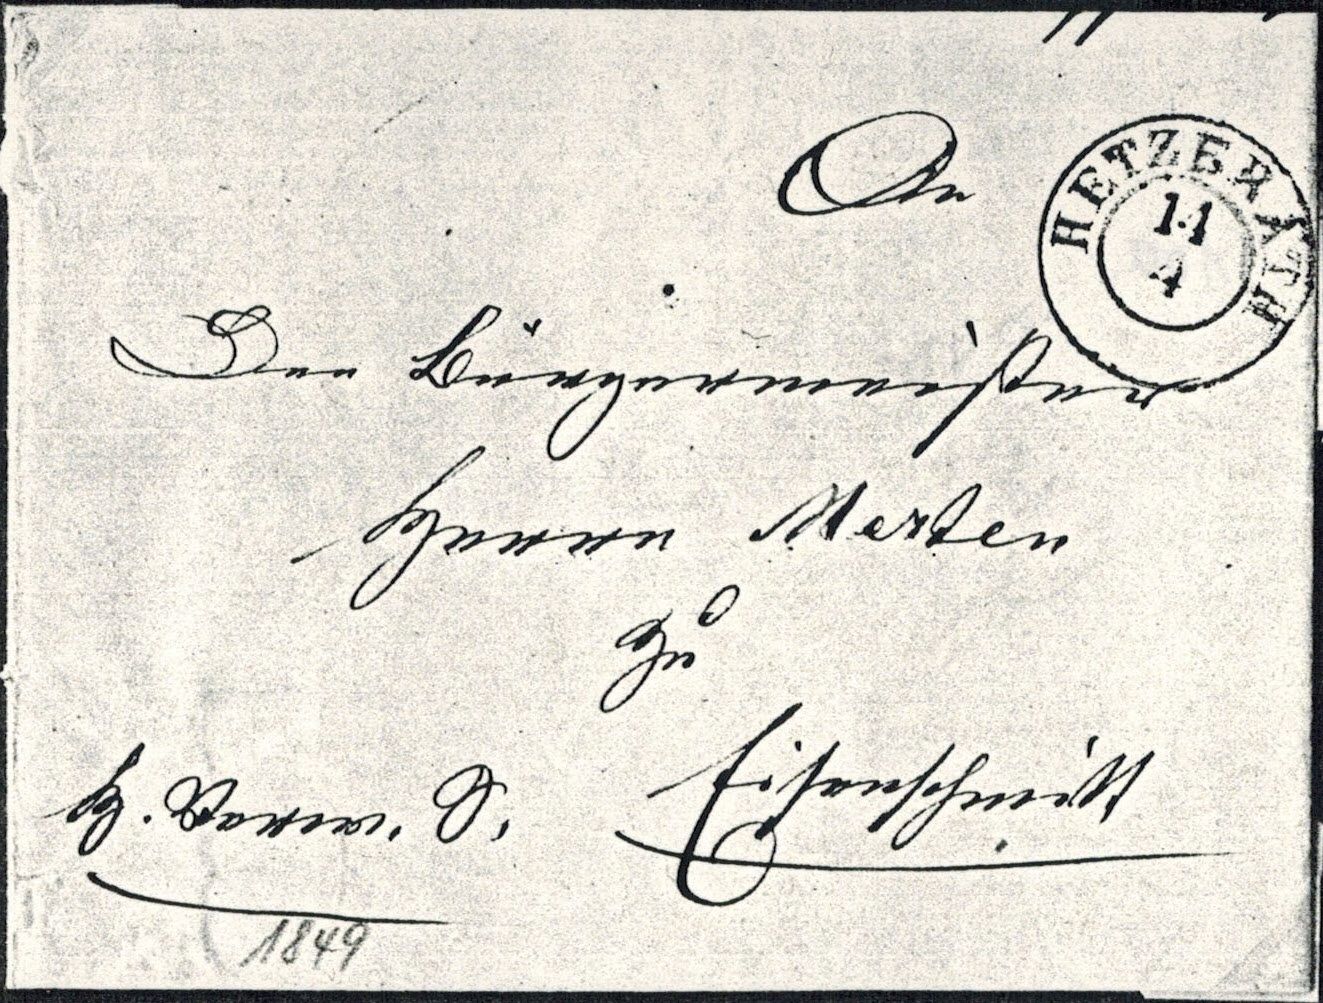 An
HETZERATH
11
4
Den Bürgermeister
Herrn Merten
zu
Eisenschmitt
H. Verw. S.
1849